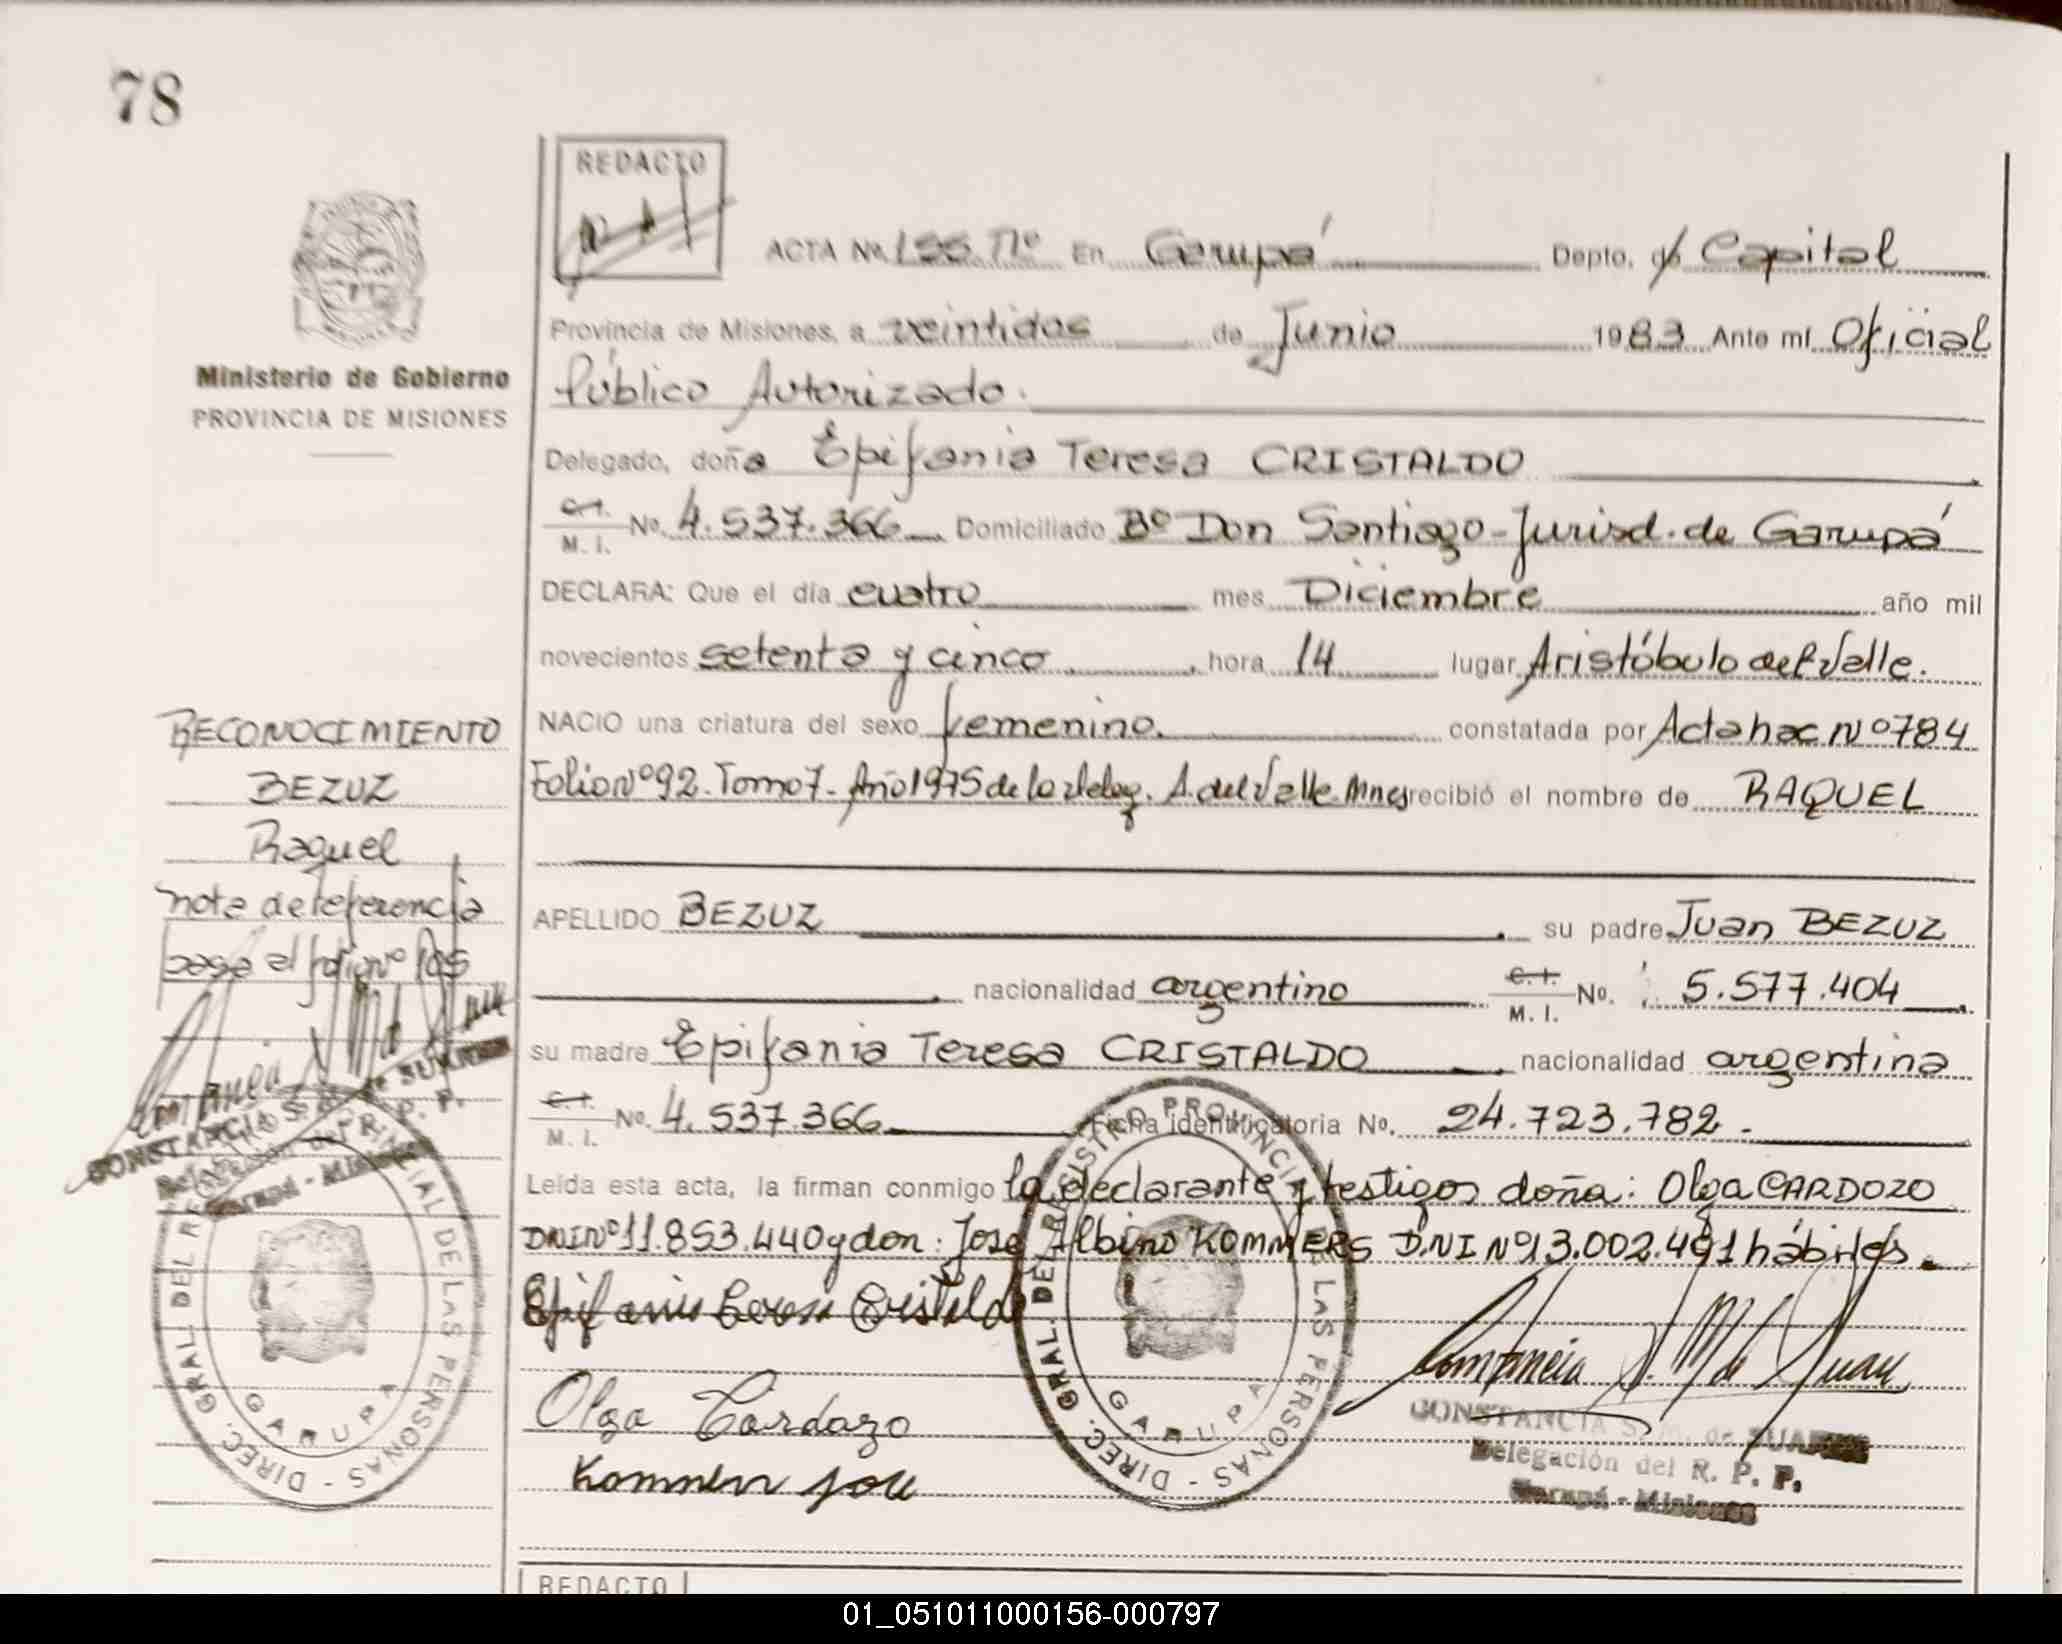 78
REDACTO
ACTA No. 155 Tº En Garupá Depto. de Capital
Ministerio de Gobierno
PROVINCIA DE MISIONES
Provincia de Misiones, a veintidos de Junio 1983 Ante mí Oficial
Público Autorizado.
Delegado, doña Epifania Teresa CRISTALDO
C.I.
M. I. No. 4.537.366 Domiciliado Bº Don Santiago - Jurisd. de Garupá
DECLARA: Que el día cuatro mes Diciembre año mil
novecientos setenta y cinco, hora 14 lugar Aristóbulo del Valle.
NACIO una criatura del sexo femenino. constatada por Acta hac Nº 784
Folio Nº 92. Tomo 7. Año 1975 de la deleg. A. del Valle. Mnes recibió el nombre de RAQUEL
RECONOCIMIENTO
BEZUZ
Raquel
nota de referencia
pasa al folio nº
APELLIDO BEZUZ su padre Juan BEZUZ
nacionalidad argentino C. I.
M. I. No. 5.577.404
su madre Epifania Teresa CRISTALDO nacionalidad argentina
C. I.
M. I. No. 4.537.366 Ficha identificatoria No. 24.723.782.
Leída esta acta, la firman conmigo la declarante y testigos doña: Olga CARDOZO
DNI Nº 11.853.440 y don: José Albino KOMMERS D.N.I Nº 13.002.491 hábiles.
Epifania Teresa Cristaldo
Olga Cardozo
Kommers José
CONSTANCIA S. M. de SUAREZ
Delegación del R. P. P.
Garupá - Misiones
CONSTANCIA S. M. de SUAREZ
Delegación del R. P. P.
Garupá - Misiones
DIREC. GRAL. DEL REGISTRO PROVINCIAL DE LAS PERSONAS
GARUPA
DIREC. GRAL. DEL REGISTRO PROVINCIAL DE LAS PERSONAS
GARUPA
REDACTO
01_051011000156-000797